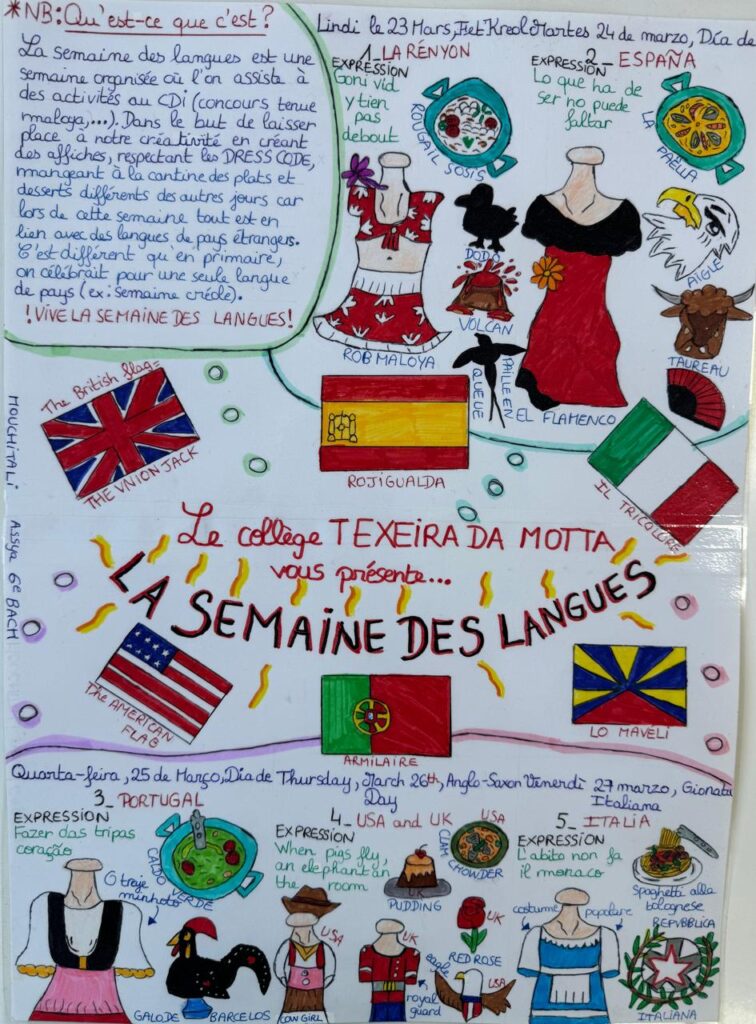 *NB: Qu'est-ce que c'est?
La semaine des langues est une
semaine organisée où l'on assiste à
des activités au CDi (concours tenue
maloya,...). Dans le but de laisser
place à notre créativité en créant
des affiches, respectant les DRESS CODE,
mangeant à la cantine des plats et
desserts différents des autres jours car
lors de cette semaine tout est en
lien avec des langues de pays étrangers.
C'est différent qu'en primaire,
on célébrait pour une seule langue
de pays (ex: semaine créole).
!VIVE LA SEMAINE DES LANGUES!
Lindi le 23 Mars, Fet Kreol
Martes 24 de marzo, Día de
1_ LA RÉNYON
EXPRESSION
Goni vid
y tien
pas
debout
ROUGAIL SOSIS
DODO
VOLCAN
PAILLE EN
QUEUE
ROB MALOYA
2_ ESPAÑA
EXPRESSION
Lo que ha de
ser no puede
faltar
LA PAËLLA
AIGLE
TAUREAU
EL FLAMENCO
The British flag=
THE UNION JACK
ROJIGUALDA
IL TRICOLORE
MOUCHITALI Assya 6e BACH
Le collège TEXEIRA DA MOTTA
vous présente...
LA SEMAINE DES LANGUES
The AMERICAN
FLAG
ARMILAIRE
LO MAVELI
Quarta-feira, 25 de Março, Dia de
Thursday, March 26th, Anglo-Saxon
Day
Venerdi 27 marzo, Gionata
Italiana
3_ PORTUGAL
EXPRESSION
Fazer das tripas
coração
CALDO VERDE
O traje
minhoto
GALO DE BARCELOS
4_ USA and UK
EXPRESSION
When pigs fly,
an elephant in
the room
USA
CLAM CHOWDER
UK
PUDDING
USA
COW GIRL
UK
royal
guard
UK
RED ROSE
eagle
USA
5_ ITALIA
EXPRESSION
L'abito non fa
il monaco
Spaghetti alla
bolognese
costume popolare
REPUBBLICA
ITALIANA